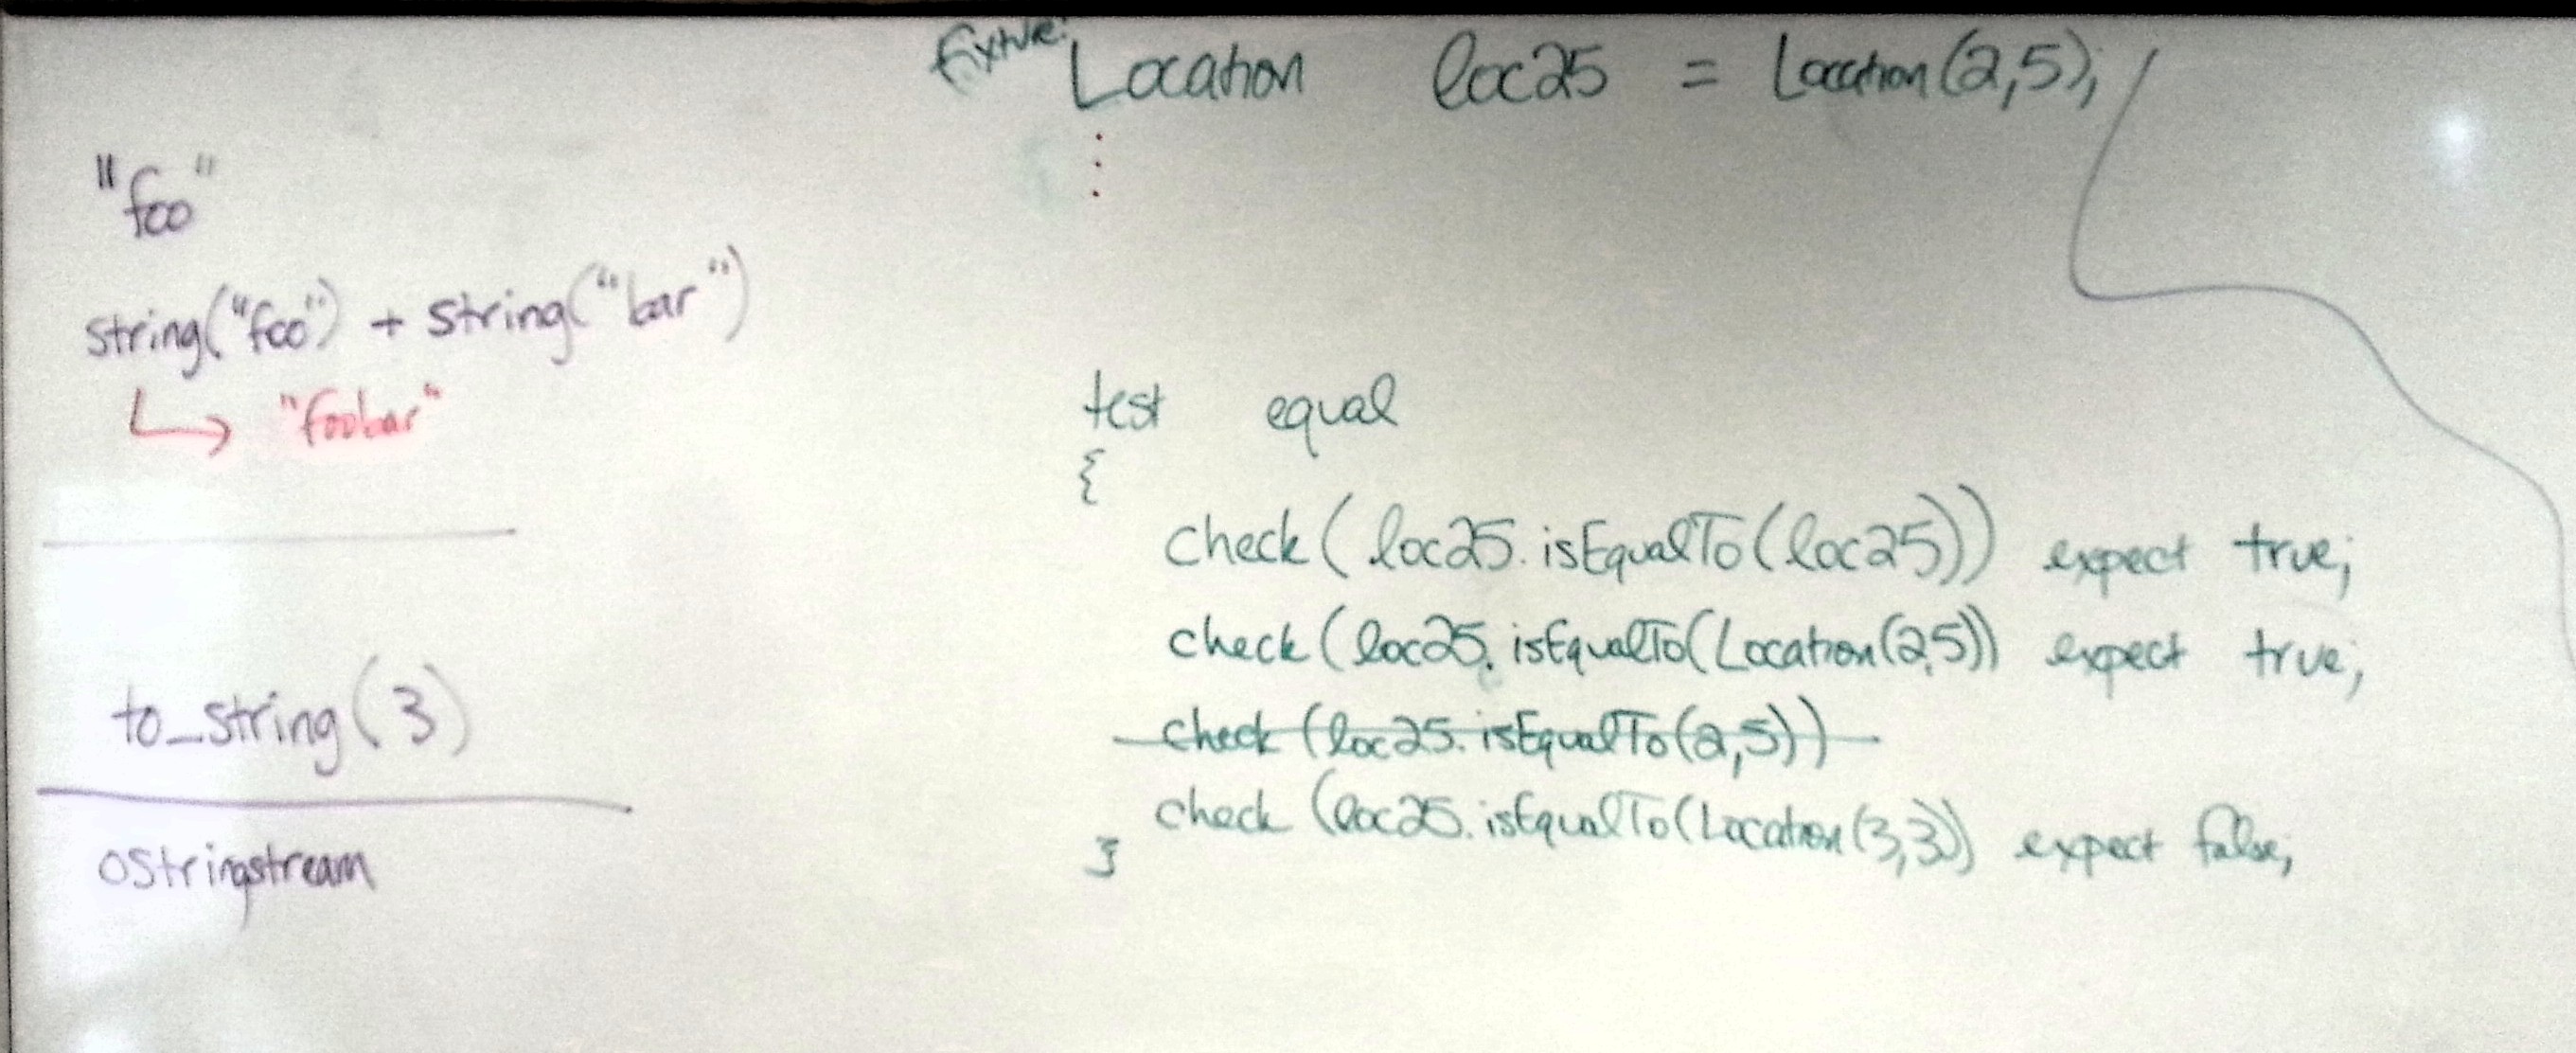 "foo"
string("foo") + string("bar")
"foobar"
to_string(3)
ostringstream
fixture:
Location loc25 = Location(2,5);
test equal
{
check(loc25.isEqualTo(loc25)) expect true;
check(loc25.isEqualTo(Location(2,5)) expect true;
check(loc25.isEqualTo(2,5))
check(loc25.isEqualTo(Location(3,3)) expect false;
}